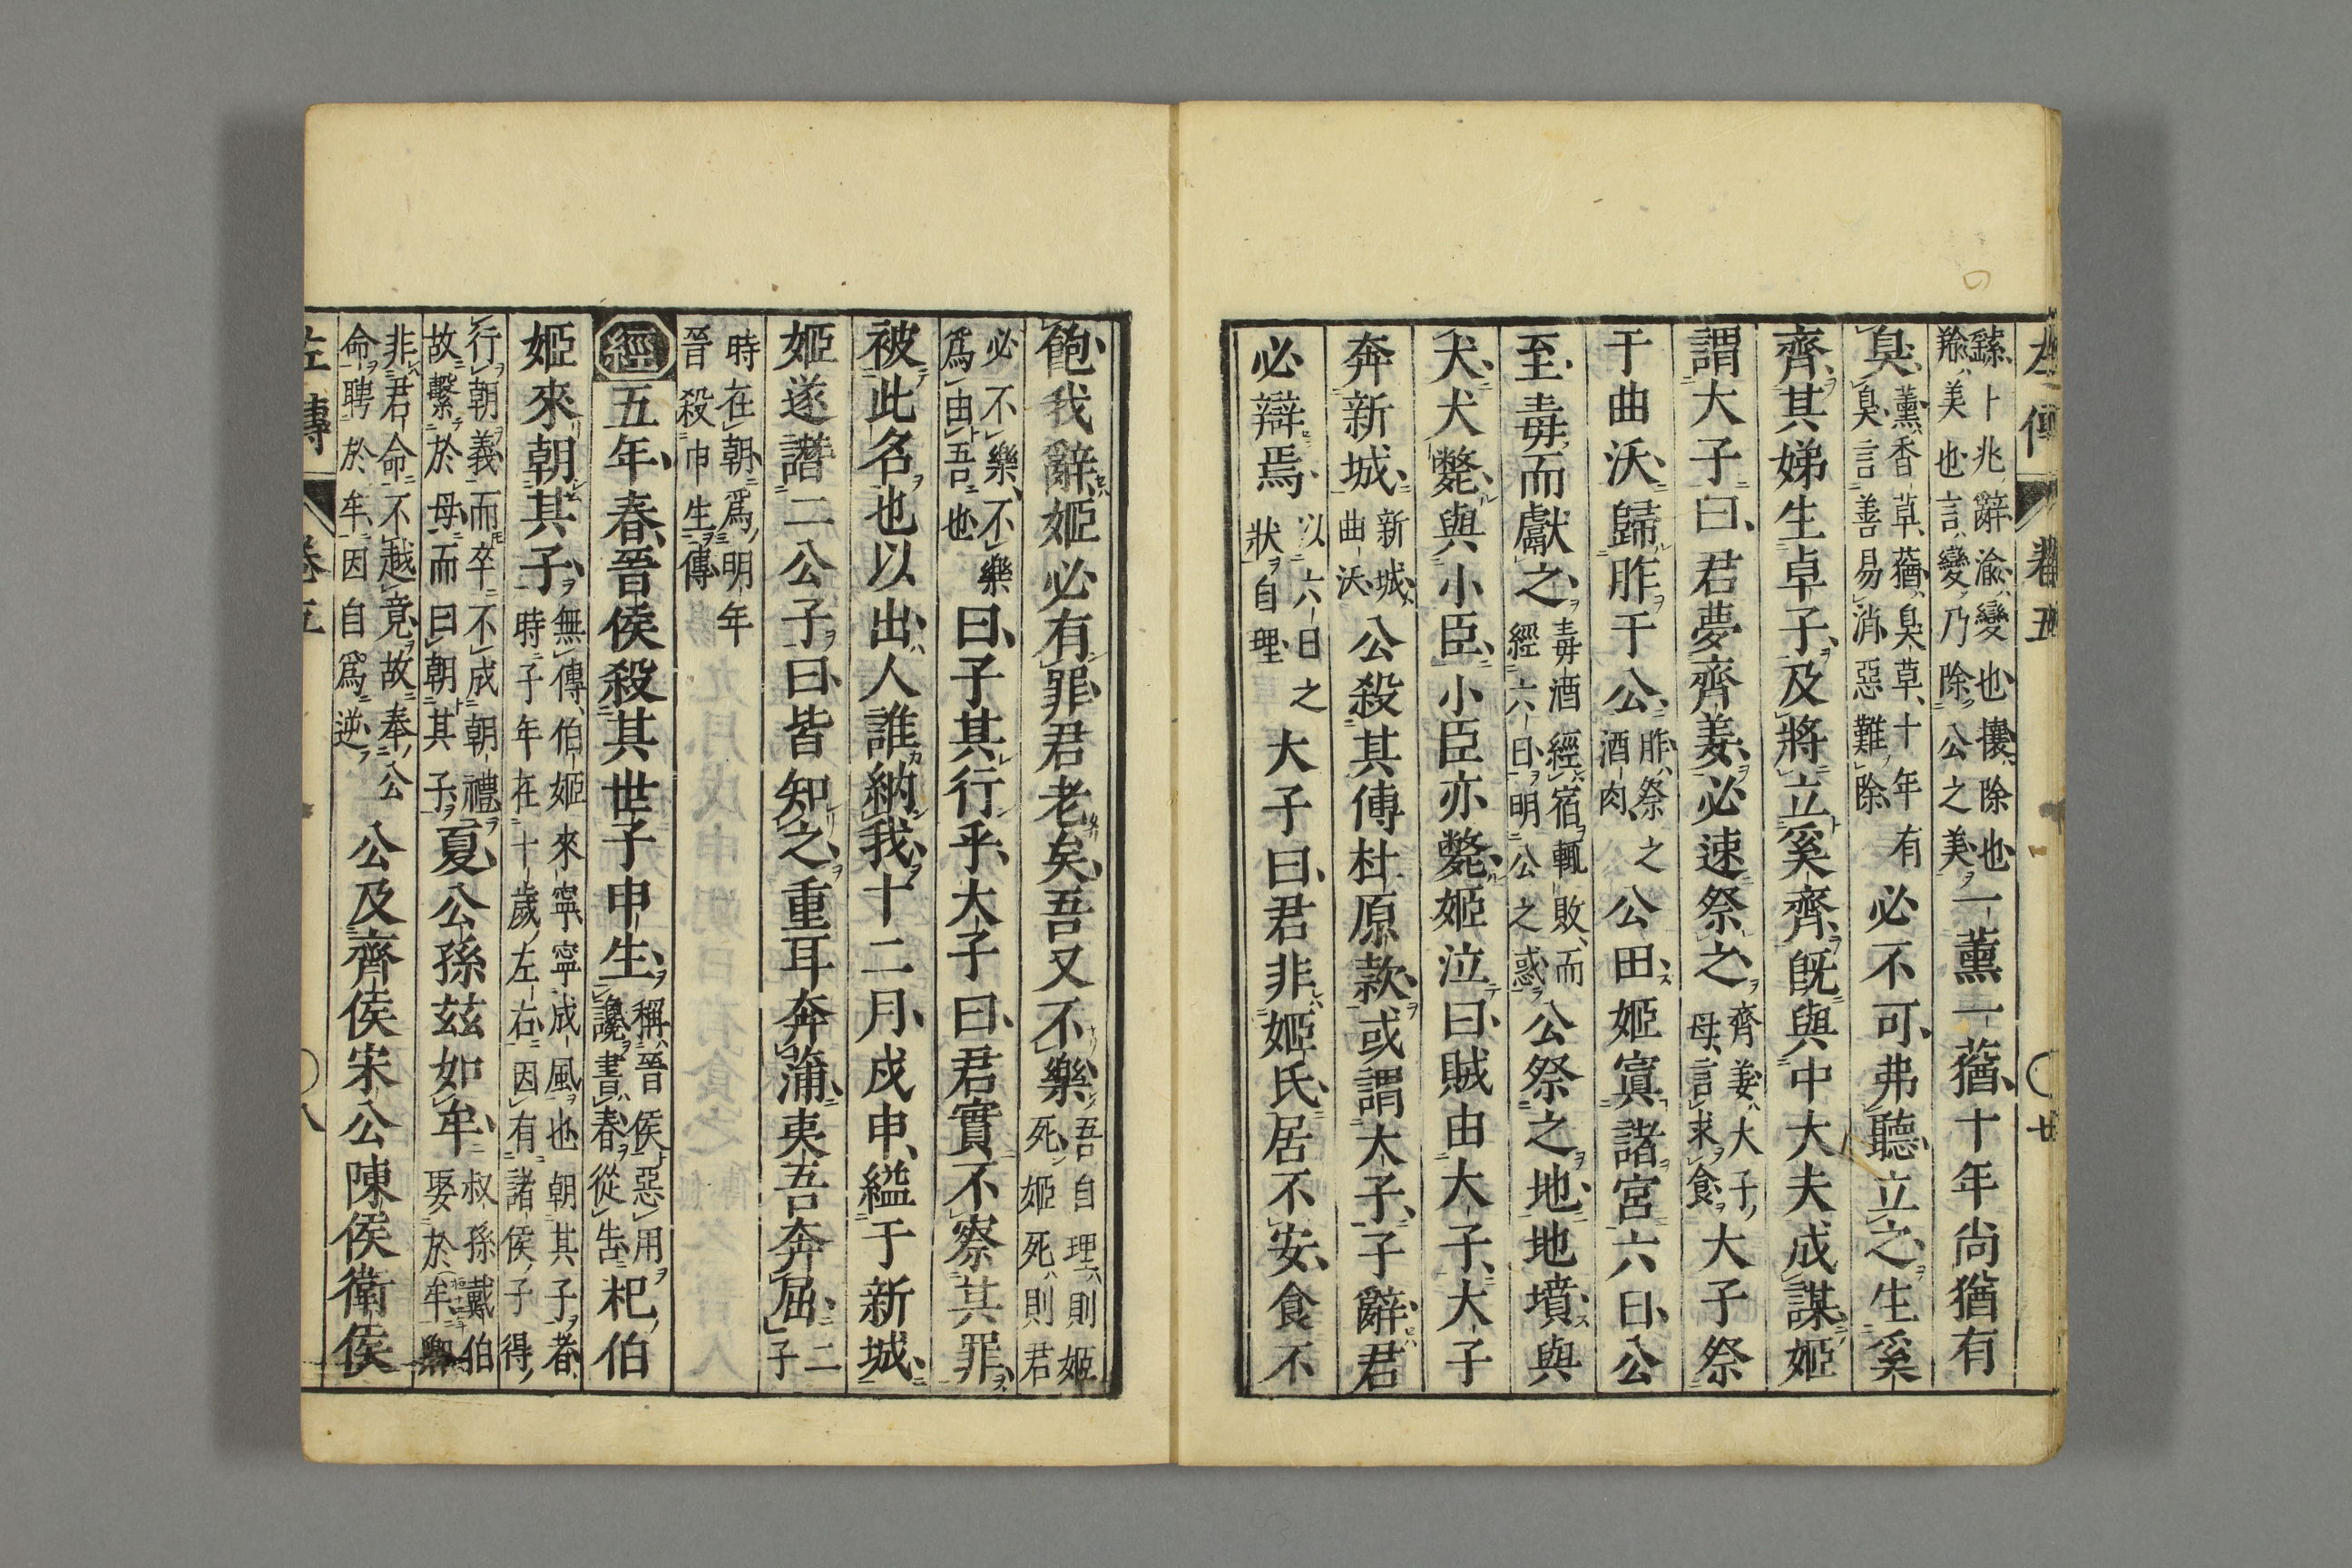 左傳 卷五 〇 廿
繇卜兆辭渝變也攘除也
羭美也言變乃除公之美一薰一蕕十年尚猶有
臭薫香草蕕臭草十年有
臭言善易消惡難除必不可弗聽立之生奚
齊其娣生卓子及將立奚齊旣與中大夫成謀姬
謂大子曰君夢齊姜必速祭之齊姜大子
母言求食大子祭
于曲沃歸胙于公胙祭之
酒肉公田姬寘諸宮六日公
至毒而獻之毒酒經宿輒敗而
經六日明公之惑公祭之地地墳與
犬犬斃與小臣小臣亦斃姬泣曰賊由大子大子
奔新城新城
曲沃公殺其傅杜原款或謂大子子辭君
必辯焉以六日之
狀自理大子曰君非姬氏居不安食不
飽我辭姬必有罪君老矣吾又不樂吾自理則姬
死姬死則君
必不樂不樂
爲由吾也曰子其行乎大子曰君實不察其罪
被此名也以出人誰納我十二月戊申縊于新城
姬遂譖二公子曰皆知之重耳奔蒲夷吾奔屈二
子
時在朝爲明年
晉殺申生傳
經五年春晉侯殺其世子申生稱晉侯惡用
讒書春從告杞伯
姬來朝其子無傳伯姬來寧寧成風也朝其子者
時子年在十歲左右因有諸侯子得
行朝義而卒不成朝禮
故繫於母而曰朝其子夏公孫茲如牟叔孫戴伯
娶於牟卿
非君命不越竟故奉公
命聘於牟因自爲逆公及齊侯宋公陳侯衛侯
左傳 卷五 〇八